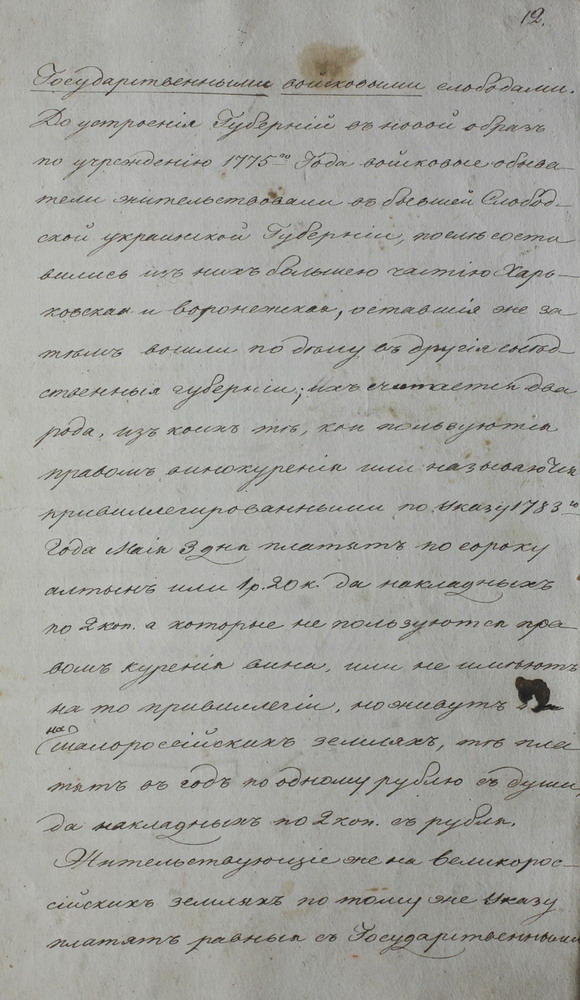 12.
Государственными войсковыми слободами.
До устроенія Губерній въ новой образъ
по учрежденію 1775го Года войсковые обыва
тели жительствовали въ бывшей Слобод-
ской украинской Губерніи, послѣ соста
вились изъ нихъ большею частію Харь-
ковская и воронежская, оставшія же за
тѣмъ вошли по дѣлу въ другія сосѣд
ственныя губерніи; ихъ считается два
рода, изъ коихъ тѣ, кои пользуются
правомъ винокуренія или называются
привиллегированными по указу 1783го
Года Маія 3 дня платятъ по сороку
алтынъ или 1 р. 20 к. да накладныхъ
по 2 коп. а которые не пользуются пра
вомъ куренія вина, или не имѣютъ
на то привиллегіи, но живутъ
на малороссійскихъ земляхъ, тѣ пла
тятъ въ годъ по одному рублю съ души,
да накладныхъ по 2 коп. съ рубля.
Жительствующіе же на великорос-
сійскихъ земляхъ по тому же указу
платятъ равныя съ Государственными